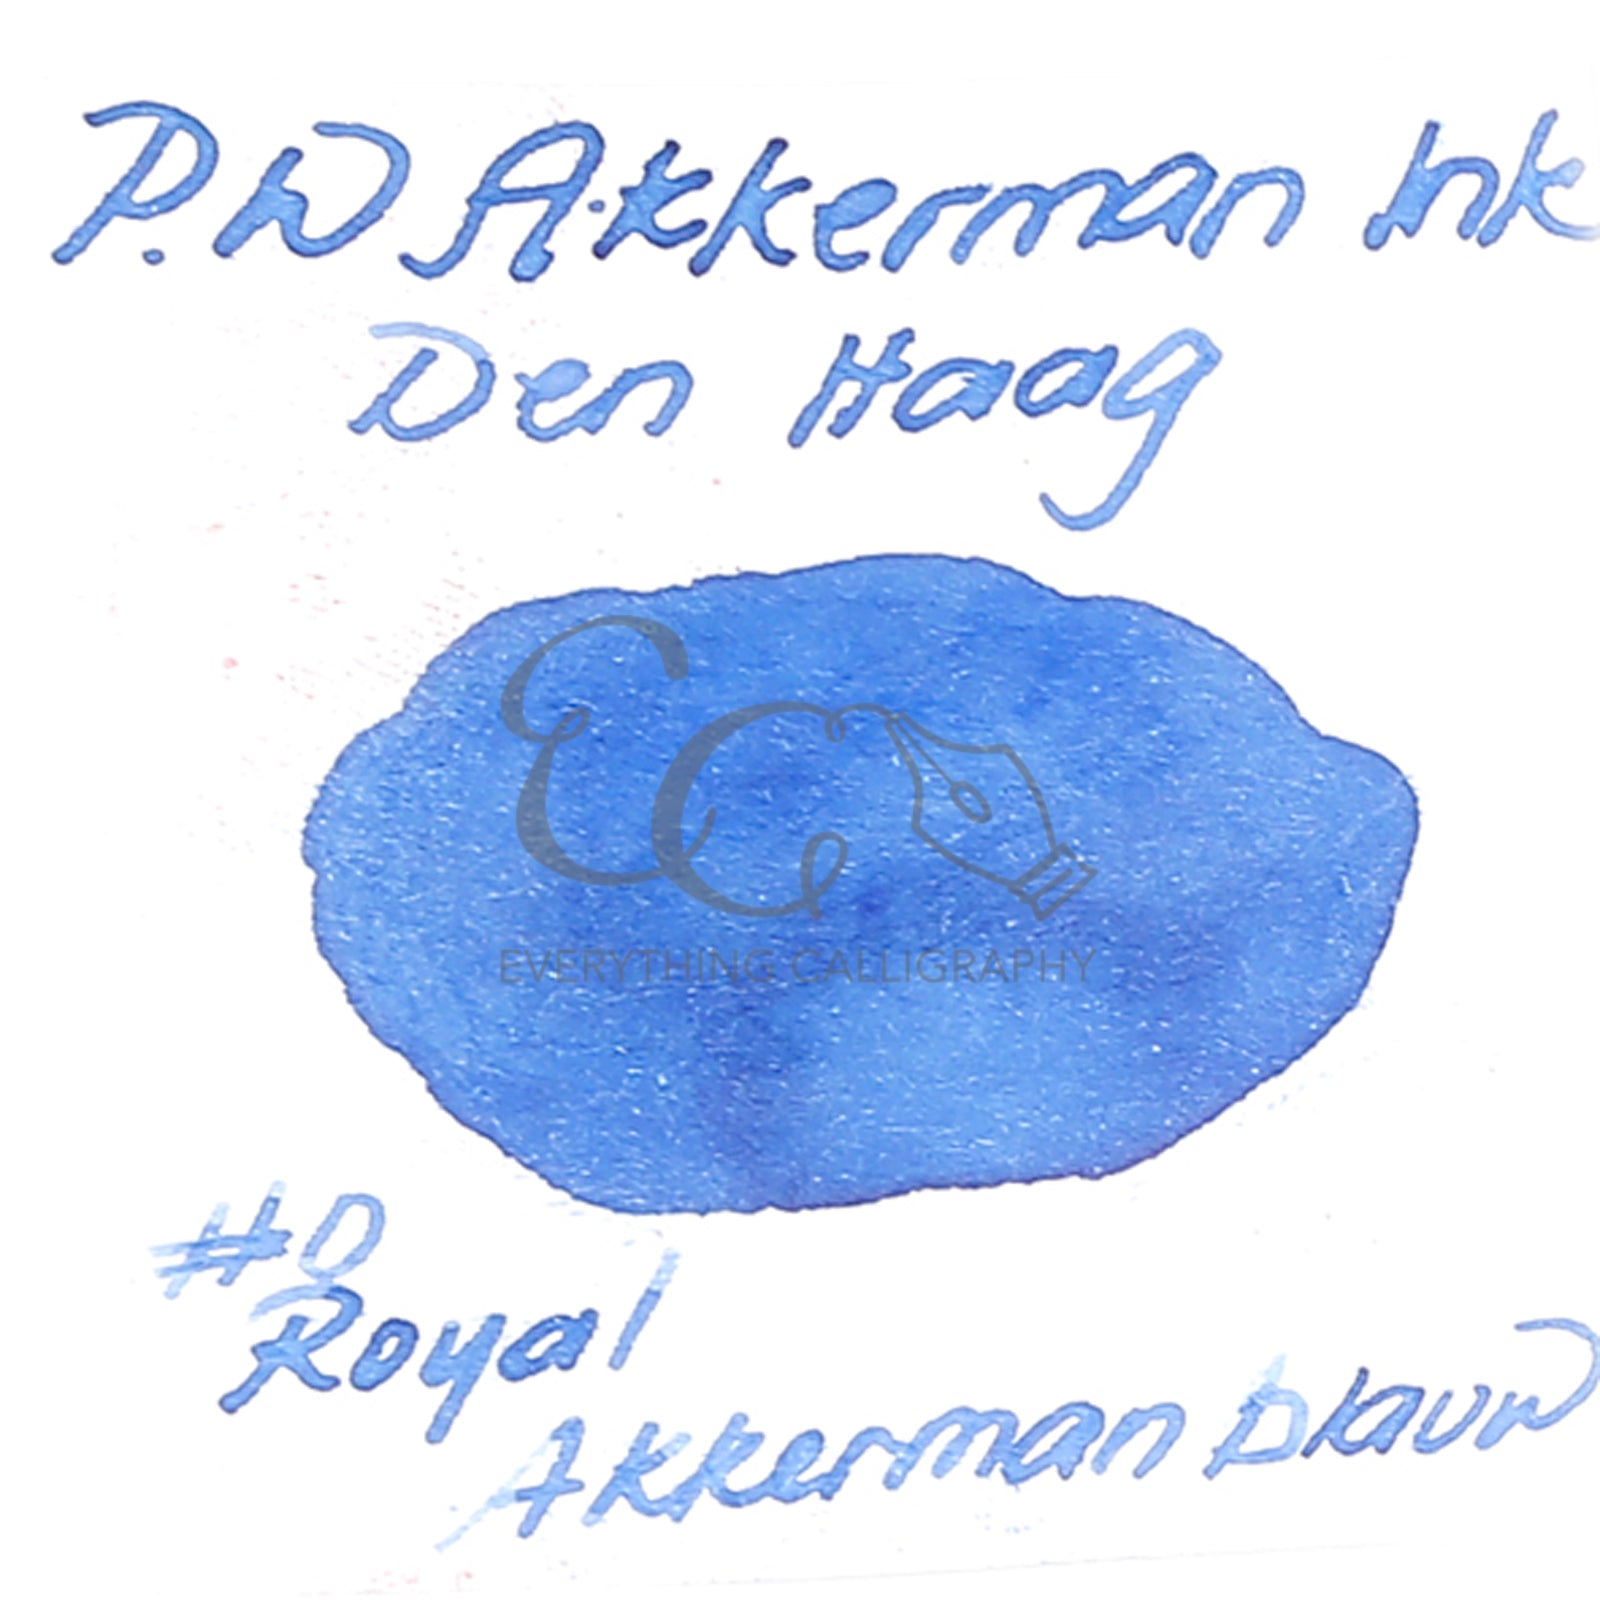 P.W Akkerman Ink
Den Haag
EC
EVERYTHING CALLIGRAPHY
#0
Royal
Akkerman blauw